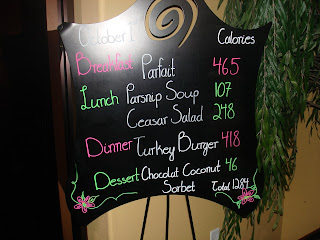 October 1 Calories
Breakfast Parfait 465
Lunch Parsnip Soup 107
Ceasar Salad 248
Dinner Turkey Burger 418
Dessert Chocolat Coconut 46
Sorbet Total 1284